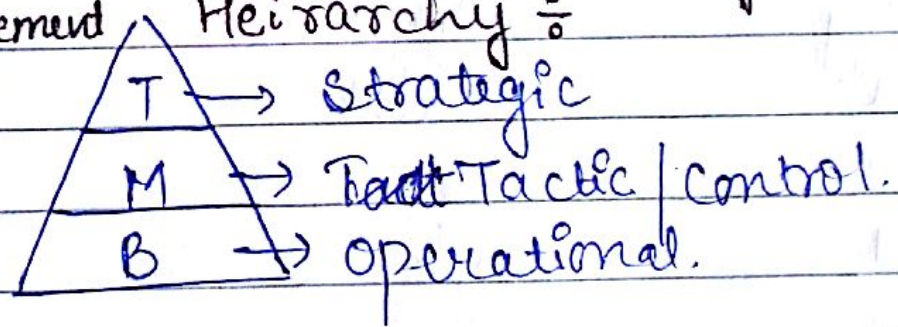 ement Heirarchy :-
T → Strategic
M → Tactic / Control.
B → Operational.